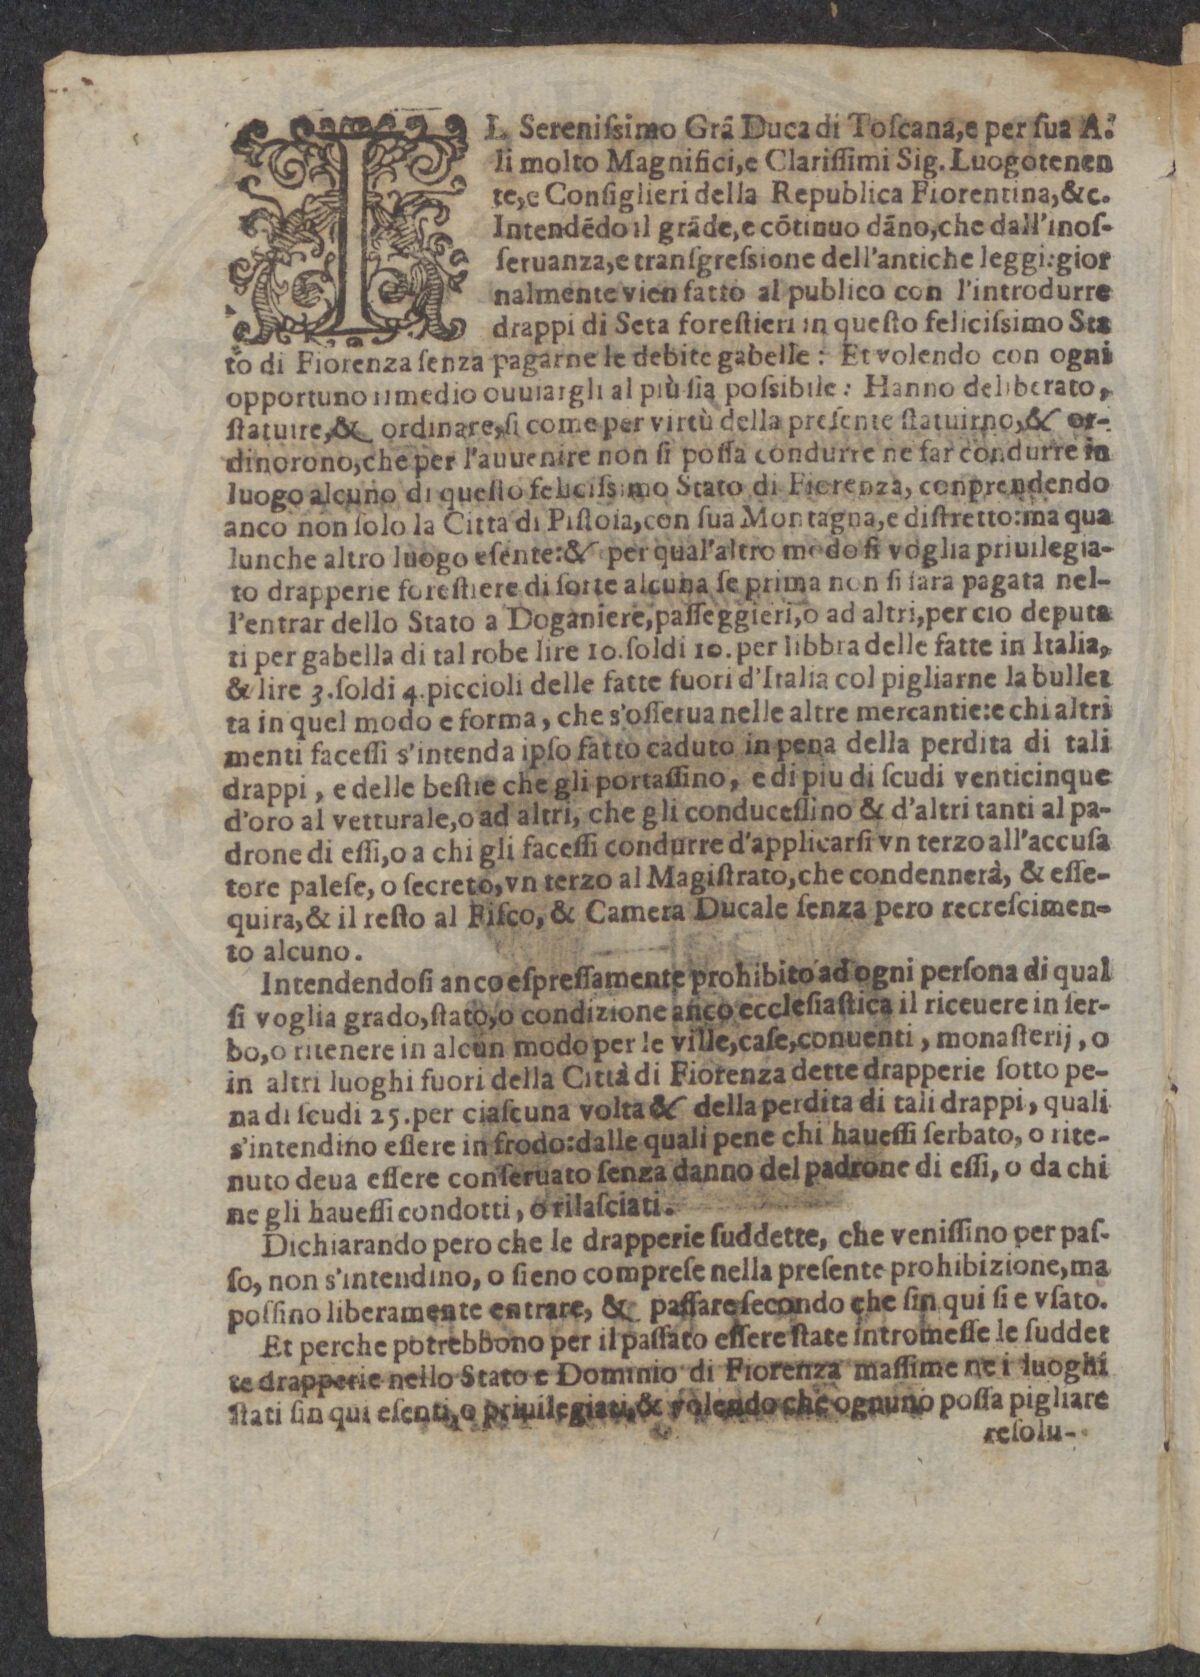 IL Sereniſsimo Grā Duca di Toſcana,e per ſua A.
li molto Magnifici,e Clariſſimi Sig. Luogotenen
te,e Conſiglieri della Republica Fiorentina,&c.
Intendēdo il grāde,e cōtinuo dāno,che dall'inoſ-
ſeruanza,e tranſgreſsione dell'antiche leggi:gior
nalmente vien fatto al publico con l'introdurre
drappi di Seta foreſtieri in queſto feliciſsimo Sta
to di Fiorenza ſenza pagarne le debite gabelle: Et volendo con ogni
opportuno rimedio ouuiargli al più ſia poſsibile: Hanno deliberato,
ſtatuire,& ordinare,ſi come per virtù della preſente ſtatuirno,& or-
dinorono,che per l'auuenire non ſi poſſa condurre ne far condurre in
luogo alcuno di queſto feliciſsimo Stato di Fiorenza, conprendendo
anco non ſolo la Citta di Piſtoia,con ſua Montagna,e diſtretto:ma qua
lunche altro luogo eſente:& per qual'altro modo ſi voglia priuilegia-
to drapperie foreſtiere di ſorte alcuna ſe prima non ſi ſara pagata nel-
l'entrar dello Stato a Doganiere,paſſeggieri,o ad altri,per cio deputa
ti per gabella di tal robe lire 10.ſoldi 10.per libbra delle fatte in Italia,
& lire 3.ſoldi 4.piccioli delle fatte fuori d'Italia col pigliarne la bullet
ta in quel modo e forma, che s'oſſerua nelle altre mercantie:e chi altri
menti faceſſi s'intenda ipſo fatto caduto in pena della perdita di tali
drappi, e delle beſtie che gli portaſſino, e di piu di ſcudi venticinque
d'oro al vetturale,o ad altri, che gli conduceſſino & d'altri tanti al pa-
drone di eſſi,o a chi gli faceſſi condurre d'applicarſi vn terzo all'accuſa
tore paleſe, o ſecreto,vn terzo al Magiſtrato,che condennerà, & eſſe-
quira,& il reſto al Fiſco, & Camera Ducale ſenza pero recreſcimen-
to alcuno.
Intendendoſi anco eſpreſſamente prohibito ad ogni perſona di qual
ſi voglia grado,ſtato,o condizione anco eccleſiaſtica il riceuere in ſer-
bo,o ritenere in alcun modo per le ville,caſe,conuenti, monaſterij, o
in altri luoghi fuori della Città di Fiorenza dette drapperie ſotto pe-
na di ſcudi 25.per ciaſcuna volta & della perdita di tali drappi, quali
s'intendino eſſere in frodo:dalle quali pene chi haueſſi ſerbato, o rite-
nuto deua eſſere conſeruato ſenza danno del padrone di eſſi, o da chi
ne gli haueſſi condotti, o rilaſciati.
Dichiarando pero che le drapperie ſuddette, che veniſſino per paſ-
ſo, non s'intendino, o ſieno compreſe nella preſente prohibizione,ma
poſſino liberamente entrare, & paſſare ſecondo che ſin qui ſi e vſato.
Et perche potrebbono per il paſſato eſſere ſtate intromeſſe le ſuddet
te drapperie nello Stato e Dominio di Fiorenza maſſime ne i luoghi
ſtati ſin qui eſenti,o priuilegiati,& volendo che ognuno poſſa pigliare
reſolu-